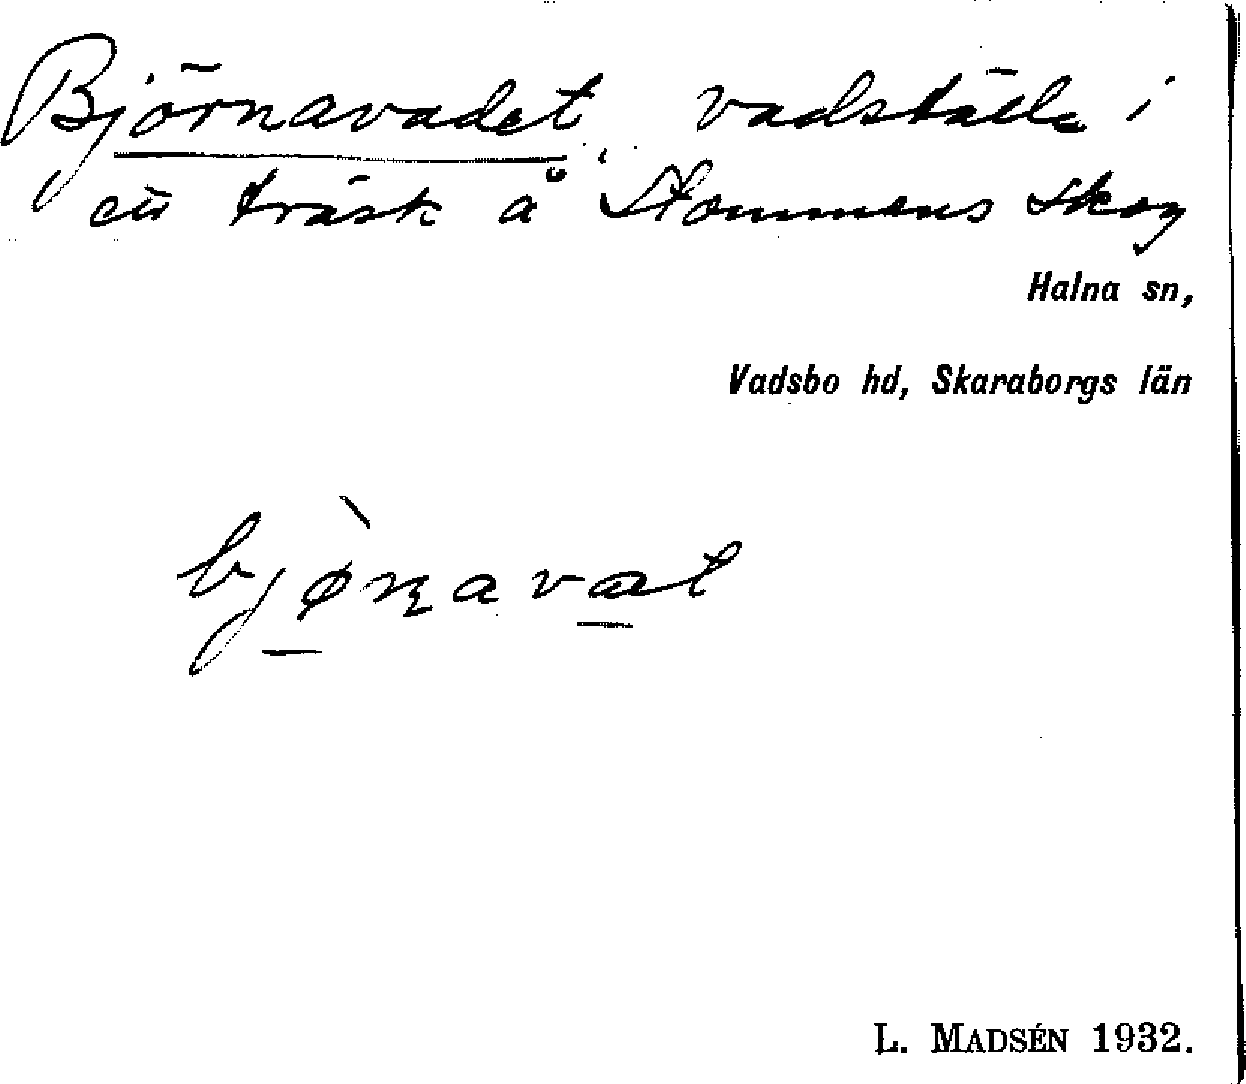 Björnavadet, vadställe i
ett träsk å Stommens skog
Halna sn,
Vadsbo hd, Skaraborgs län
bjø̀ɳavat
L. MADSÉN 1932.